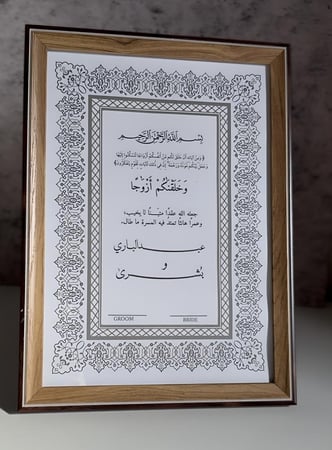 بسم الله الرحمن الرحيم
﴿ وَمِنْ آيَاتِهِ أَنْ خَلَقَ لَكُم مِّنْ أَنفُسِكُمْ أَزْوَاجًا لِّتَسْكُنُوا إِلَيْهَا
وَجَعَلَ بَيْنَكُم مَّوَدَّةً وَرَحْمَةً إِنَّ فِي ذَٰلِكَ لَآيَاتٍ لِّقَوْمٍ يَتَفَكَّرُونَ ﴾
وَخَلَقْنَٰكُمْ أَزْوَٰجًا
جعله الله عقدًا متينًا لا يخيب،
وعمرًا هانئًا تمتد فيه المسرة ما طال.
عبدالباري
و
بشرى
GROOM BRIDE